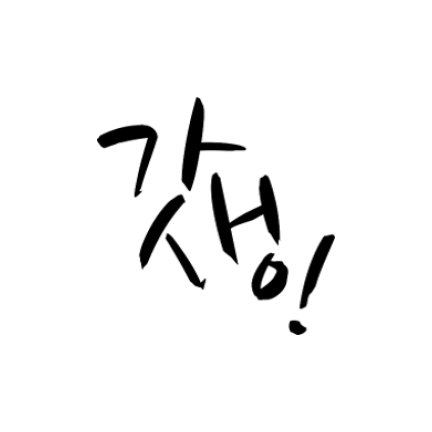 갓생!